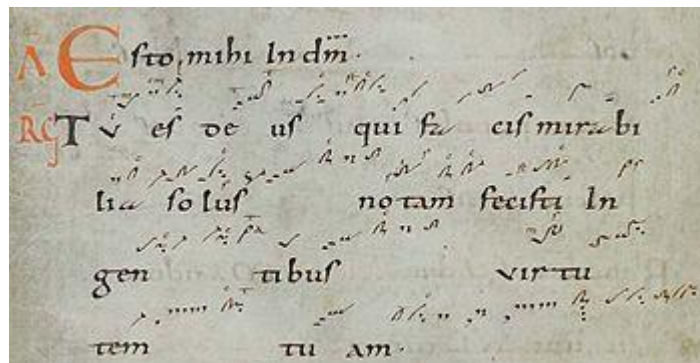 A Esto mihi In dm̅.
RG Tv es de us qui fa cis mirabi
lia solus notam fecisti In
gen tibus virtu
tem tu am.